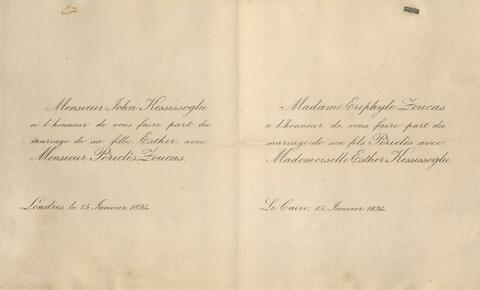 Monsieur John Kessissoglu
a l'honneur de vous faire part du
mariage de sa fille Esther avec
Monsieur Périclès Zoucas.
Londres, le 15 Janvier, 1894.
Madame Eriphyle Zoucas
a l'honneur de vous faire part du
mariage de son fils Périclès avec
Mademoiselle Esther Kessissoglu
Le Caire, 15, Janvier 1894.